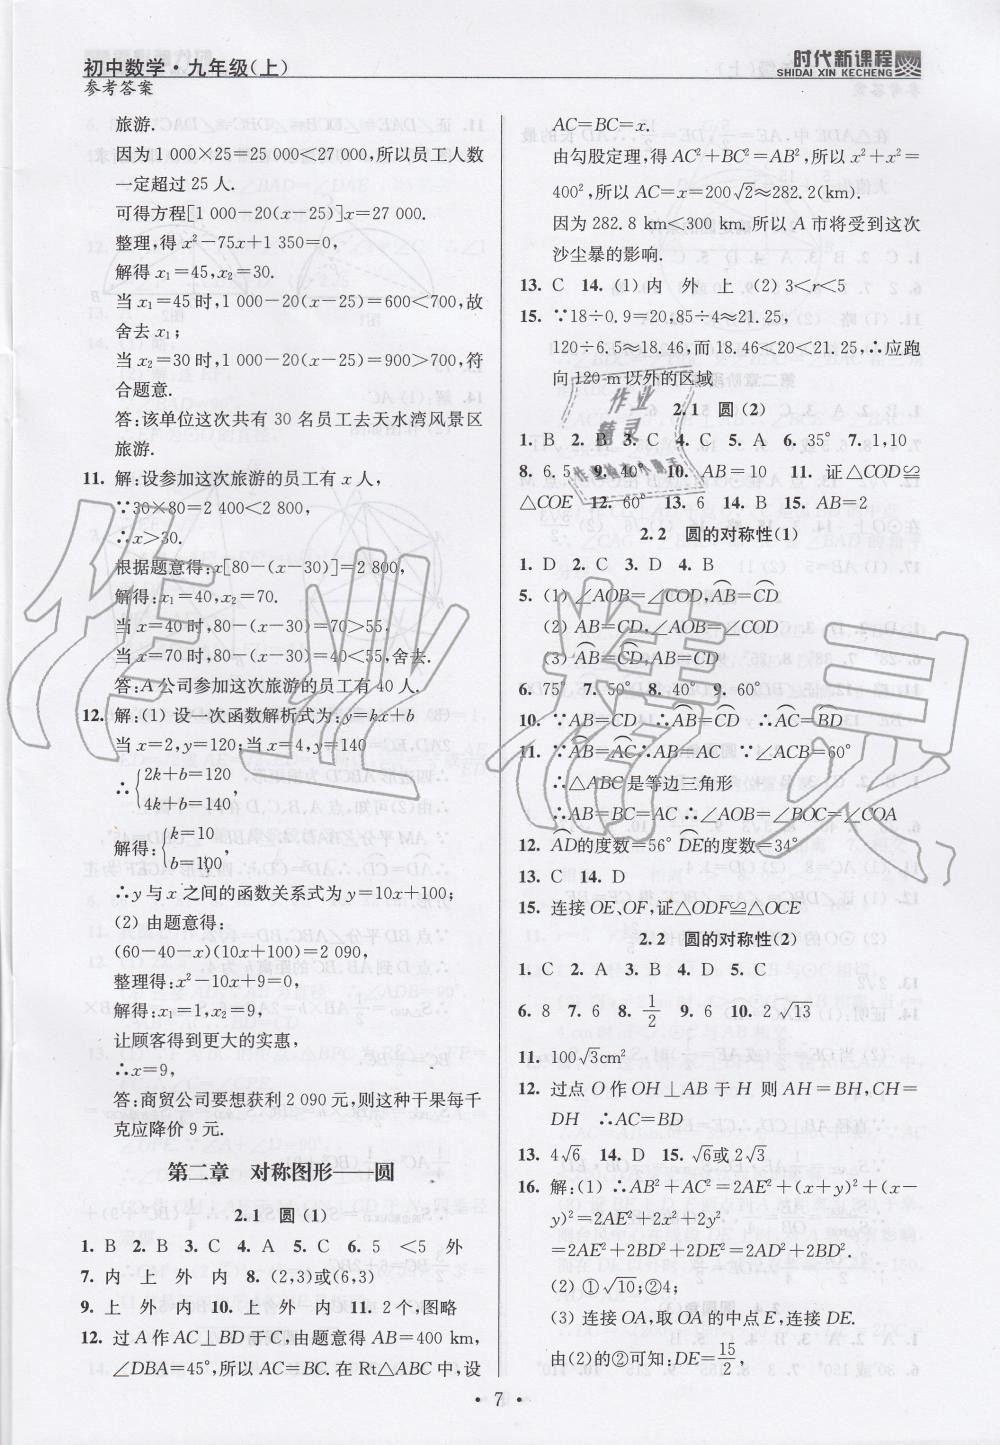 初中数学·九年级(上)
参考答案
时代新课程
SHIDAI XIN KECHENG
旅游.
因为1 000×25=25 000<27 000,所以员工人数
一定超过25人.
可得方程[1 000-20(x-25)]x=27 000.
整理,得x²-75x+1 350=0,
解得x₁=45,x₂=30.
当x₁=45时,1 000-20(x-25)=600<700,故
舍去x₁;
当x₂=30时,1 000-20(x-25)=900>700,符
合题意.
答:该单位这次共有30名员工去天水湾风景区
旅游.
11. 解:设参加这次旅游的员工有x人,
∵30×80=2 400<2 800,
∴x>30.
根据题意得:x[80-(x-30)]=2 800,
解得:x₁=40,x₂=70.
当x=40时,80-(x-30)=70>55.
当x=70时,80-(x-30)=40<55,舍去.
答:A公司参加这次旅游的员工有40人.
12. 解:(1) 设一次函数解析式为:y=kx+b
当x=2,y=120;当x=4,y=140
∴{2k+b=120
4k+b=140,
解得:{k=10
b=100,
∴y与x之间的函数关系式为y=10x+100;
(2) 由题意得:
(60-40-x)(10x+100)=2 090,
整理得:x²-10x+9=0,
解得:x₁=1,x₂=9,
让顾客得到更大的实惠,
∴x=9,
答:商贸公司要想获利2 090元,则这种干果每千
克应降价9元.
第二章 对称图形——圆
2.1 圆(1)
1. B 2. B 3. C 4. A 5. C 6. 5 <5 外
7. 内 上 外 内 8. (2,3)或(6,3)
9. 上 外 内 10. 上 外 内 11. 2个,图略
12. 过A作AC⊥BD于C,由题意得AB=400 km,
∠DBA=45°,所以AC=BC. 在Rt△ABC中,设
AC=BC=x.
由勾股定理,得AC²+BC²=AB²,所以x²+x²=
400²,所以AC=x=200√2≈282.2(km).
因为282.8 km<300 km. 所以A市将受到这次
沙尘暴的影响.
13. C 14. (1) 内 外 上 (2) 3<r<5
15. ∵18÷0.9=20,85÷4≈21.25,
120÷6.5≈18.46,而18.46<20<21.25,∴应跑
向120 m以外的区域
2.1 圆(2)
1. B 2. B 3. C 4. C 5. A 6. 35° 7. 1,10
8. 6.5 9. 40° 10. AB=10 11. 证△COD≌
△COE 12. 60° 13. 6 14. B 15. AB=2
2.2 圆的对称性(1)
1. D 2. C 3. D 4. B
5. (1) ∠AOB=∠COD,AB=CD
(2) AB=CD,∠AOB=∠COD
(3) AB=CD,AB=CD
6. 75° 7. 50° 8. 40° 9. 60°
10. ∵AB=CD ∴AB=CD ∴AC=BD
11. ∵AB=AC∴AB=AC ∵∠ACB=60°
∴△ABC是等边三角形
∴AB=BC=AC ∴∠AOB=∠BOC=∠COA
12. AD的度数=56° DE的度数=34°
13. C 14. D
15. 连接OE、OF,证△ODF≌△OCE
2.2 圆的对称性(2)
1. C 2. A 3. B 4. D 5. C
6. 8 7. 6 8. 1/2 9. 6 10. 2√13
11. 100√3cm²
12. 过点O作OH⊥AB于H 则AH=BH,CH=
DH ∴AC=BD
13. 4√6 14. D 15. √6或2√3
16. 解:(1) ∴AB²+AC²=2AE²+(x+y)²+(x-
y)²=2AE²+2x²+2y²
=2AE²+2BD²+2DE²=2AD²+2BD².
(2) ①√10;②4;
(3) 连接OA,取OA的中点E,连接DE.
由(2)的②可知:DE=15/2,
· 7 ·
作业精灵